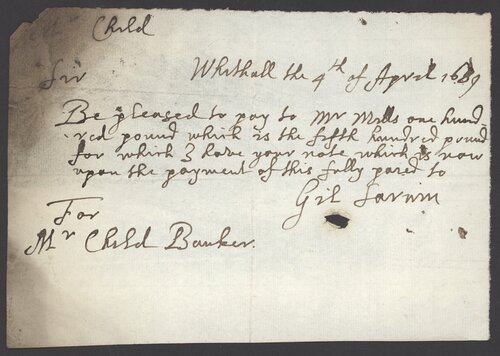 Mr Child
Sir Whithall the 4th of April 1689
Be pleased to pay to Mr Mills one hund
red pound which is the fifth hundred pound
for which I have your note which is now
upon the payment of this fully payed to
Gil
For
Mr Child Banker.